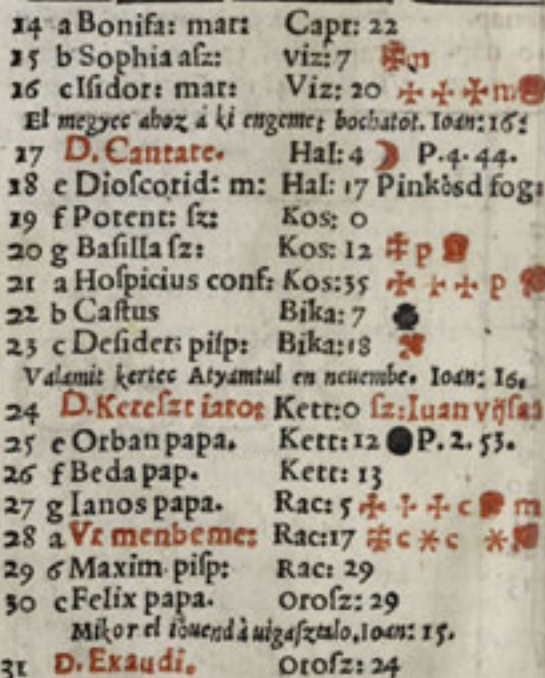 14 a Bonifa: mar: Capr: 22
15 b Sophia aſz: viz: 7 m
16 c Iſidor: mar: Viz: 20 m
El megyec ahoz à ki engemet bochatot. Ioan: 16:
17 D. Cantate. Hal: 4 ☽ P. 4. 44.
18 e Dioſcorid: m: Hal: 17 Pinkòsd fog:
19 f Potent: ſz: Kos: 0
20 g Baſilla ſz: Kos: 12 p
21 a Hoſpicius conf: Kos: 35 p
22 b Caſtus Bika: 7
23 c Deſider: piſp: Bika: 18
Valamit kertec Atyamtul en neuembe. Ioan: 16.
24 D. Kereſzt iaro: Kett: 0 ſz: Iuan
25 e Orban papa. Kett: 12 P. 2. 53.
26 f Beda pap. Kett: 13
27 g Ianos papa. Rac: 5 c m
28 a Vr menbeme: Rac: 17 c * c *
29 6 Maxim piſp: Rac: 29
30 c Felix papa. Oroſz: 29
Mikor el iòuend à uigaſztalo, Ioan: 15.
31 D. Exaudi. Oroſz: 24